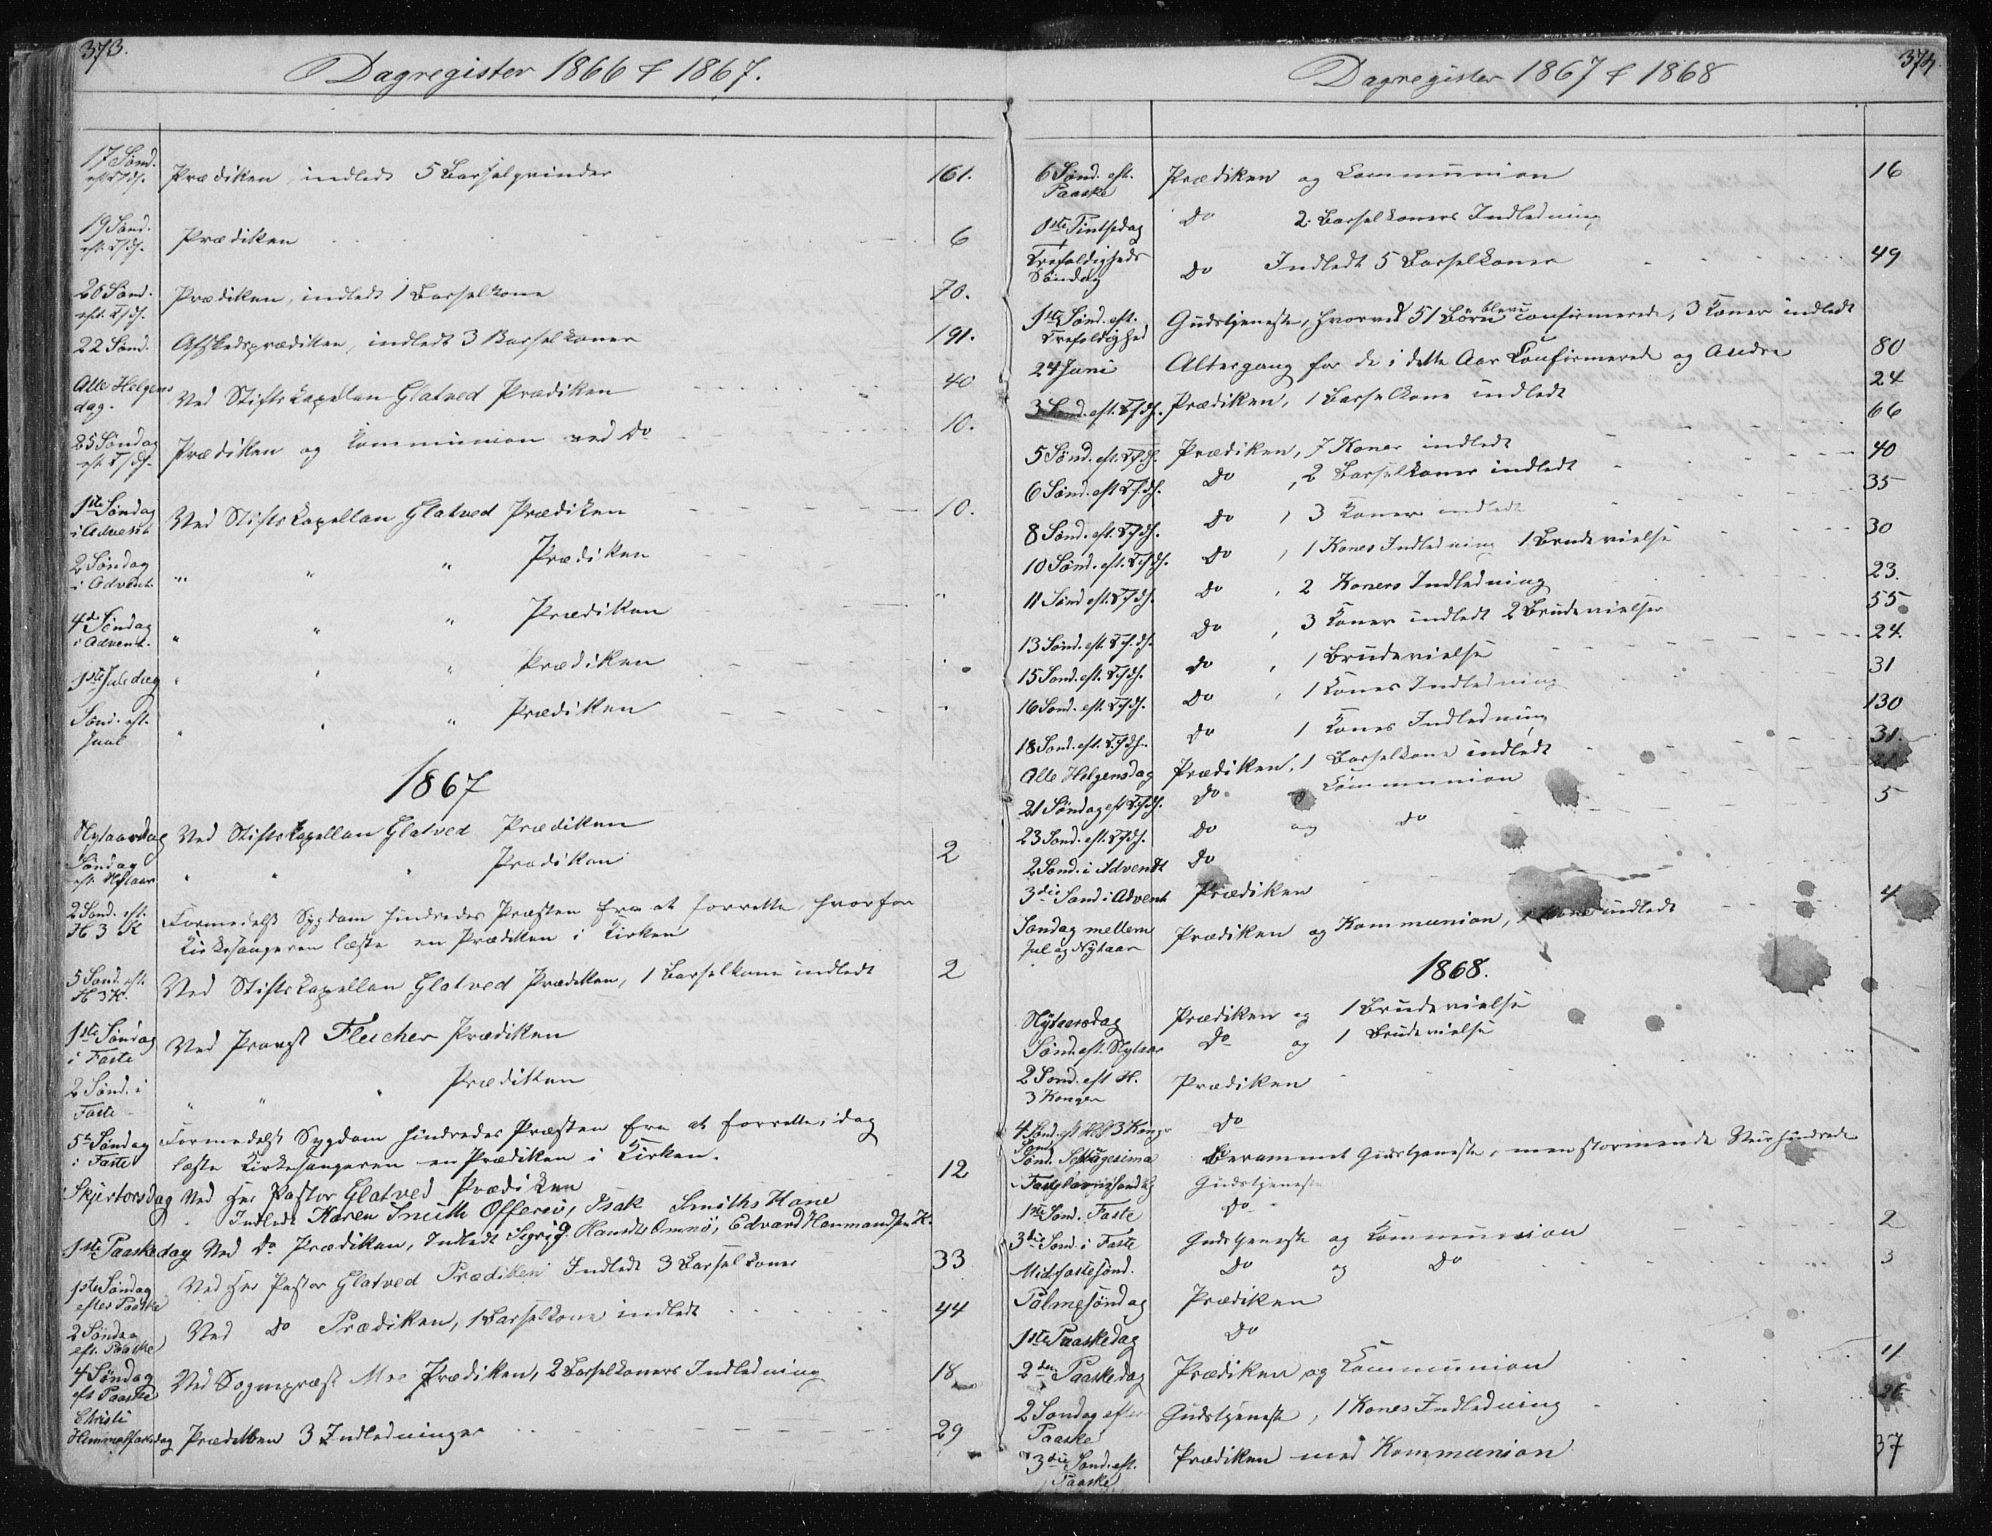 373.
Dagregister 1866 & 1867.
17 Sønd. eft. Tfdh. Prædiken, indledt 5 Barselqvinder 161.
19 Sønd. eft. Tfdh. Prædiken 6
20 Sønd. eft. Tfdh. Prædiken, indledt 1 Barselkone 70.
22 Sønd. Afskedsprædiken, indledt 3 Barselkoner 191.
Alle Helgens dag. Ved Stiftskapellan Glatved Prædiken 40
25 Søndag eft. Tfdh. Prædiken og Kommunion ved Do 10.
1ste Søndag i Advent Ved Stiftskapellan Glatved Prædiken 10.
2 Søndag i Advent " " " Prædiken
4de Søndag i Advent. " " " Prædiken
1ste Juledag " " " Prædiken
Sønd. eft. Juul " " " Prædiken
1867
Nytaarsdag Ved Stiftskapellan Glatved Prædiken
Søndag eft. Nytaar " " " Prædiken 2
2 Sønd. eft. H 3 K Formedelst Sygdom hindredes Præsten fra at forrette, hvorfor
Kirkesangeren læste en Prædiken i Kirken
5 Sønd. eft. H 3 K. Ved Stiftskapellan Glatved Prædiken, 1 Barselkone indledt 2
1ste Søndag i Faste Ved Provst Fleischer Prædiken
2 Sønd. i Faste " " " Prædiken
5te Søndag i Faste Formedelst Sygdom hindredes Præsten fra at forrette, idag
læste Kirkesangeren en Prædiken i Kirken.
Skjertorsdag Ved Hr Pastor Glatved Prædiken 12
Indledt Karen Smith Offersø, Isak Smiths Kone
1ste Paaskedag Ved Do Prædiken, Indledt Sigrid Hansdtr Omnø, Edvard Hermansen K.
1ste Søndag efter Paaske Ved Hr Pastor Glatved Prædiken Indledt 3 Barselkoner 33
2 Søndag eft. Paaske Ved Do Prædiken, 1 Barselkone indledt 44
4 Søndag eft Paaske Ved Sognepræst Moe Prædiken, 2 Barselkoners Indledning 18
Christi Himmelfartsdag Prædiken 3 Indledninger 29
374.
Dagregister 1867 & 1868
6 Sønd. eft. Paaske Prædiken og Communion 16
1ste Pintsedag Do 2 Barselkoners Indledning
Trefoldigheds Søndag Do Indledt 5 Barselkoner 49
1ste Sønd. eft. Trefoldighed Gudstjeneste, hvorved 51 Børn bleve confirmerede, 3 Koner indledt
24 Juni Altergang for de i dette Aar Confirmerede og Andre 80
3 Sønd. eft. Tfdh. Prædiken, 1 Barselkone indledt 24
66
5 Sønd. eft. Tfdh. Prædiken, 7 Koner indledt
6 Sønd. eft Tfdh. Do , 2 Barselkoner indledt 40
8 Sønd. eft. Tfdh. Do , 3 Koner indledt 35
10 Sønd. eft. Tfdh. Do , 1 Kones Indledning 1 Brudevielse 30
11 Sønd eft. Tfdh. Do , 2 Koners Indledning 23.
13 Sønd. eft. Tfdh. Do , 3 Koner indledt 2 Brudevielser 55
15 Sønd. eft. Tfdh. Do , 1 Brudevielse 24
16 Sønd. eft. Tfdh. Do , 1 Kones Indledning 31
18 Sønd. eft. Tfdh. Do 1 Kones Indledning 130
Alle Helgensdag Prædiken, 1 Barselkone indledt 31
21 Søndag eft Tfdh. Do og Communion
23 Sønd. eft. Tfdh. Do og Do 5
2 Sønd. i Advent Do
3die Sønd i Advent Prædiken
Søndag mellem Jul og Nytaar Prædiken og Kommunion, 1 Kone indledt 4
1868.
Nytaarsdag Prædiken og 1 Brudevielse
Sønd. eft. Nytaar Do og 1 Brudevielse
2 Sønd. eft H. 3 Konger Prædiken
4 Sønd. eft Hel 3 Konger Do
Sønd. Septuagesima Berammet Gudstjeneste, men stormende Veir hindrede
Fastelavnssøndag Gudstjeneste
1ste Sønd. Faste Do
3die Sønd. i Faste Gudstjeneste og Communion 2
Midfastesønd. Do og Do 3
Palmesøndag Prædiken
1ste Paaskedag Do
2den Paaskedag Prædiken og Communion 11
2 Søndag efter Paaske Gudstjeneste, 1 Kones Indledning 26
3die Sønd. eft. Paaske Prædiken med Kommunion 37